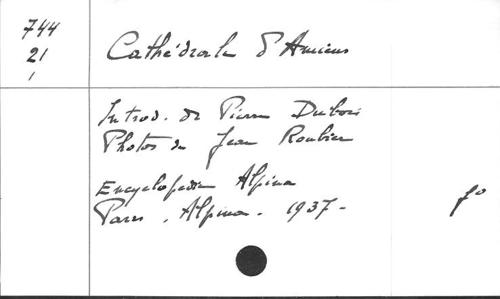 744
21
1
Cathédrale d'Amiens
Introd. de Pierre Dubois
Photos de Jean Roubier
Encyclopédie Alpina
Paris, Alpina. 1937-
fo